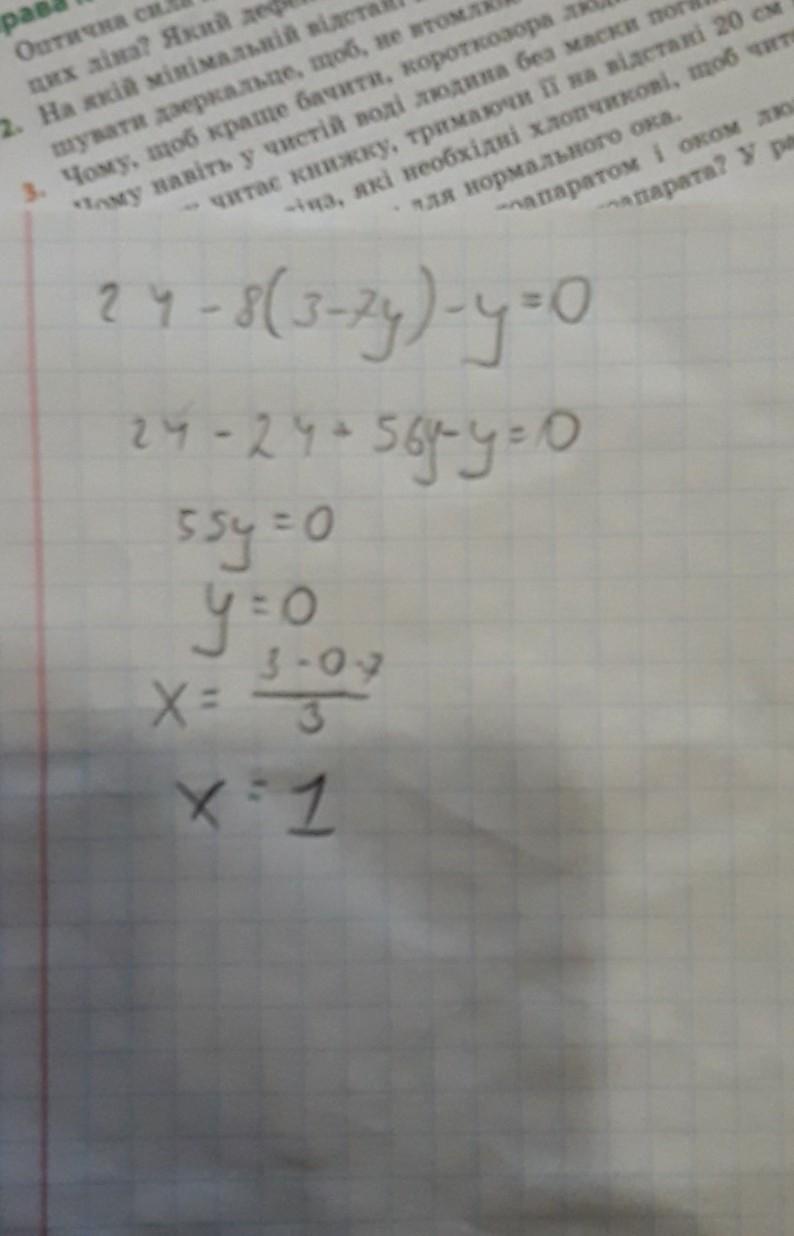 рава
Оптична сила
цих лінз? Який
2. На якій мінімальній відстані
шувати дзеркальце, щоб, не
Чому, щоб краще бачити, короткозора
3. Чому навіть у чистій воді людина без маски
читає книжку, тримаючи її на відстані 20 см
які необхідні хлопчикові, щоб
для нормального ока.
і оком
У
24 - 8(3-7y) - y = 0
24 - 24 + 56y - y = 0
55y = 0
y = 0
x = \frac{3 - 0 \cdot 7}{3}
x = 1